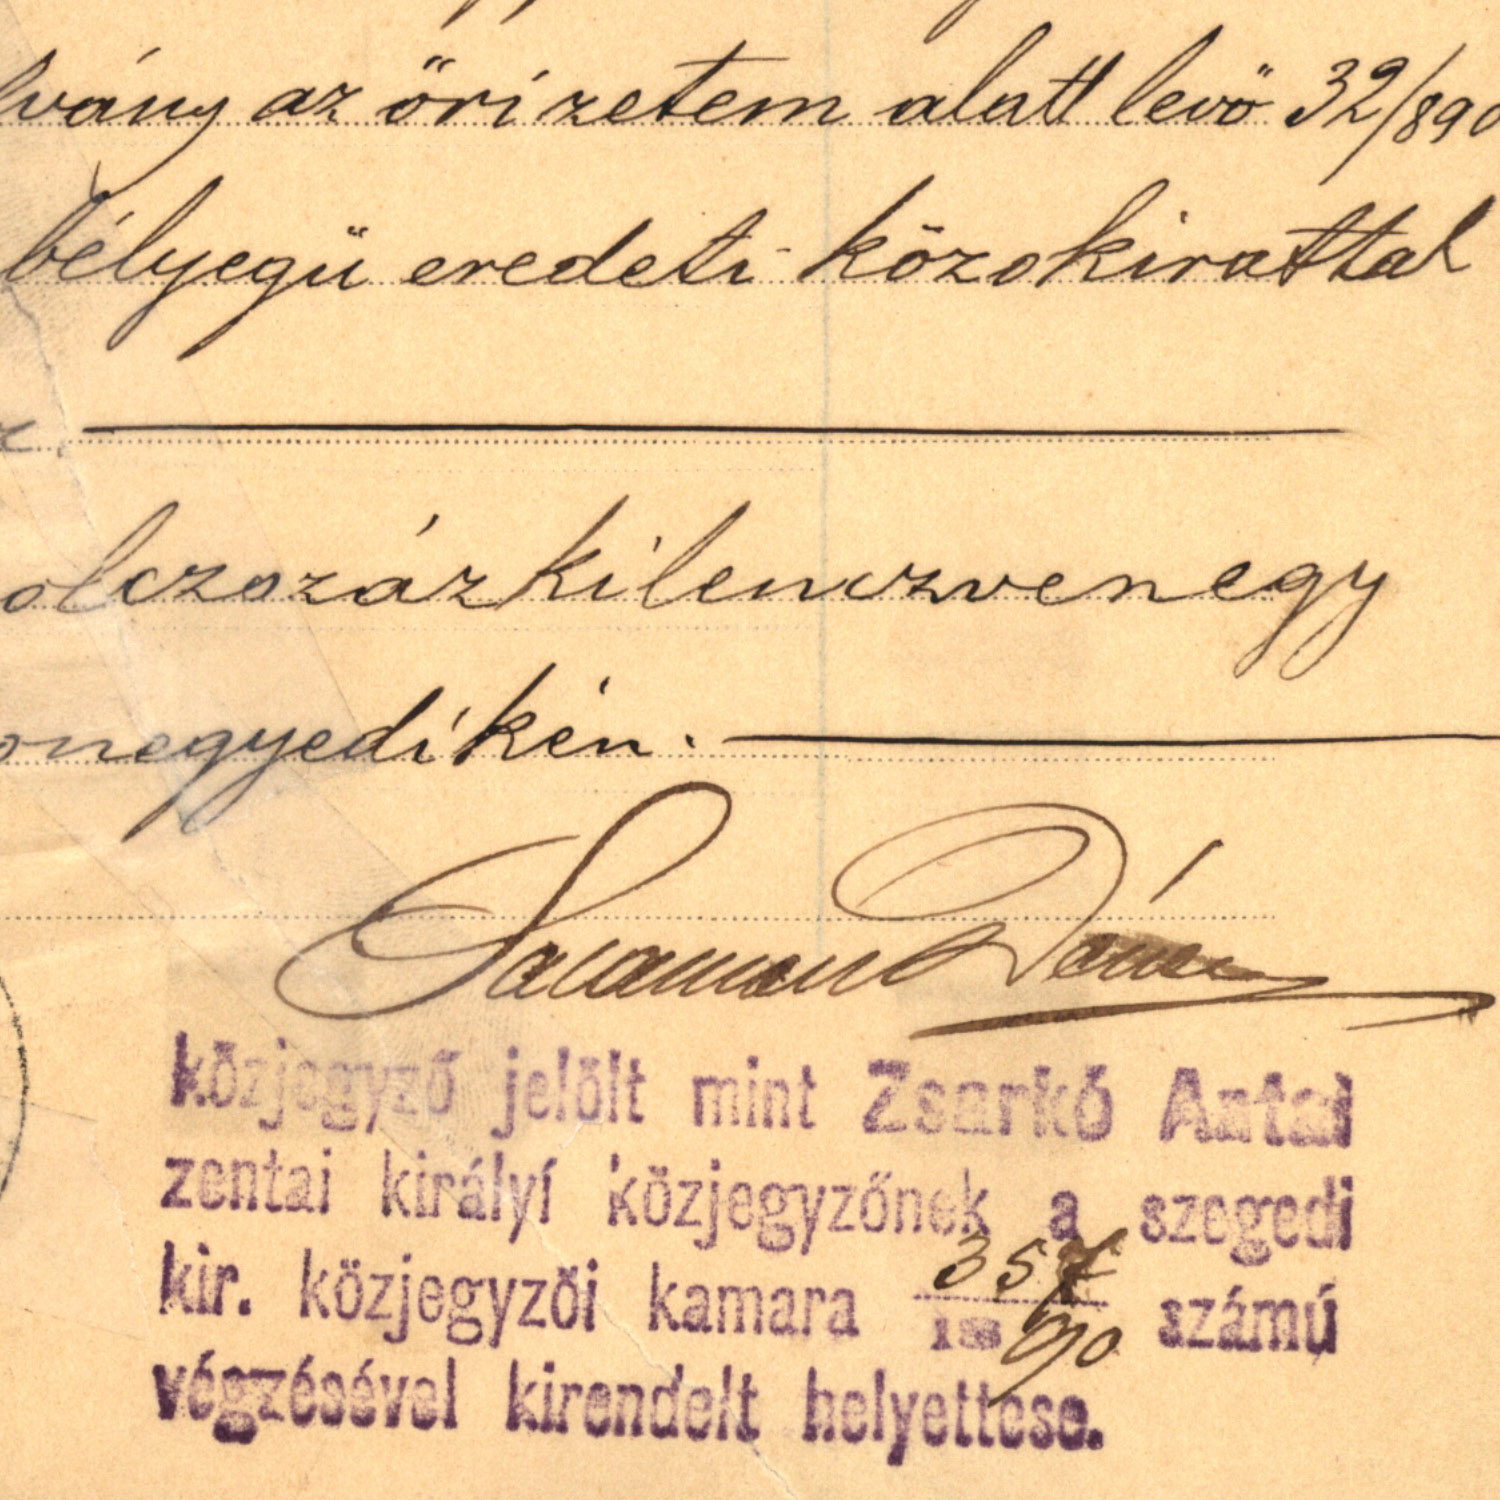 lvány az őrizetem alatt levő 32/890
bélyegü eredeti közokirattal
olczszázkilenczvenegy
onegyedikén.
Salamon Dénes
közjegyző jelölt mint Zsarkó Antal
zentai királyi közjegyzőnek a szegedi
kir. közjegyzői kamara 357/1890 számú
végzésével kirendelt helyettese.